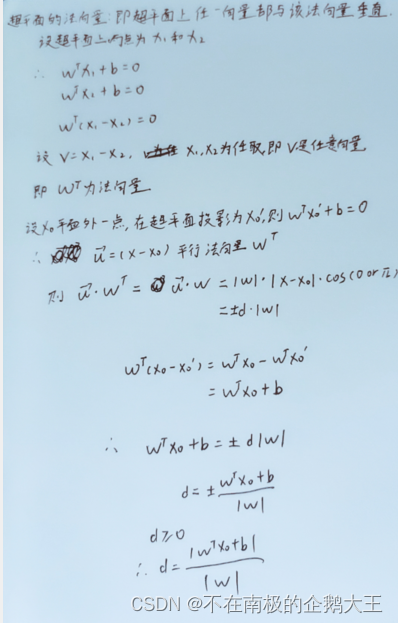 超平面的法向量:即超平面上任一向量都与该法向量垂直
设超平面上两点为 x₁ 和 x₂
∴ wᵀx₁+b=0
wᵀx₂+b=0
wᵀ(x₁-x₂)=0
设 V=x₁-x₂, x₁,x₂为任取,即V是任意向量
即 wᵀ为法向量
设x₀平面外一点,在超平面投影为x₀',则 wᵀx₀'+b=0
∴ u⃗=(x-x₀) 平行法向量 wᵀ
则 u⃗·wᵀ= u⃗·w = |w|·|x-x₀|·cos(0 or π)
=±d·|w|
wᵀ(x₀-x₀') = wᵀx₀-wᵀx₀'
= wᵀx₀+b
∴ wᵀx₀+b=±d|w|
d=± wᵀx₀+b / |w|
d≥0
∴ d= |wᵀx₀+b| / |w|
CSDN @不在南极的企鹅大王